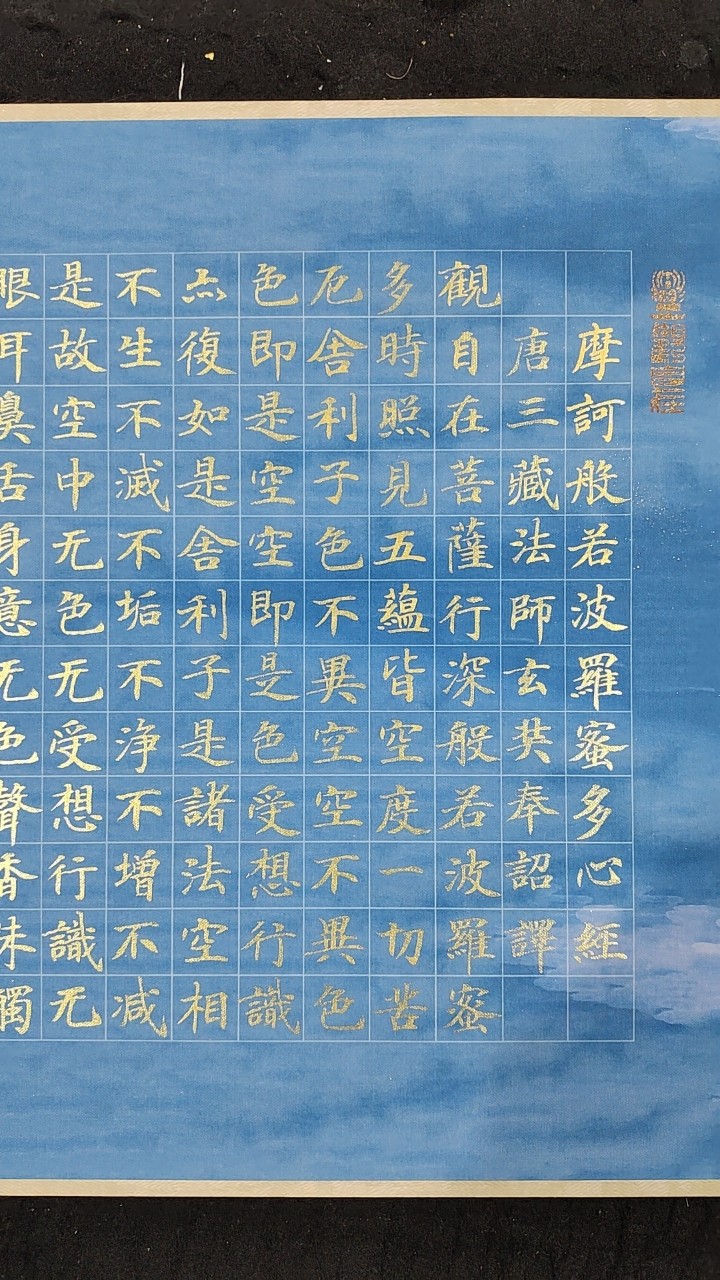 摩訶般若波羅蜜多心經
唐三藏法師玄奘奉詔譯
觀自在菩薩行深般若波羅蜜
多時照見五蘊皆空度一切苦
厄舍利子色不異空空不異色
色即是空空即是色受想行識
亦復如是舍利子是諸法空相
不生不滅不垢不浄不增不减
是故空中无色无受想行識无
眼耳鼻舌身意无色聲香味觸